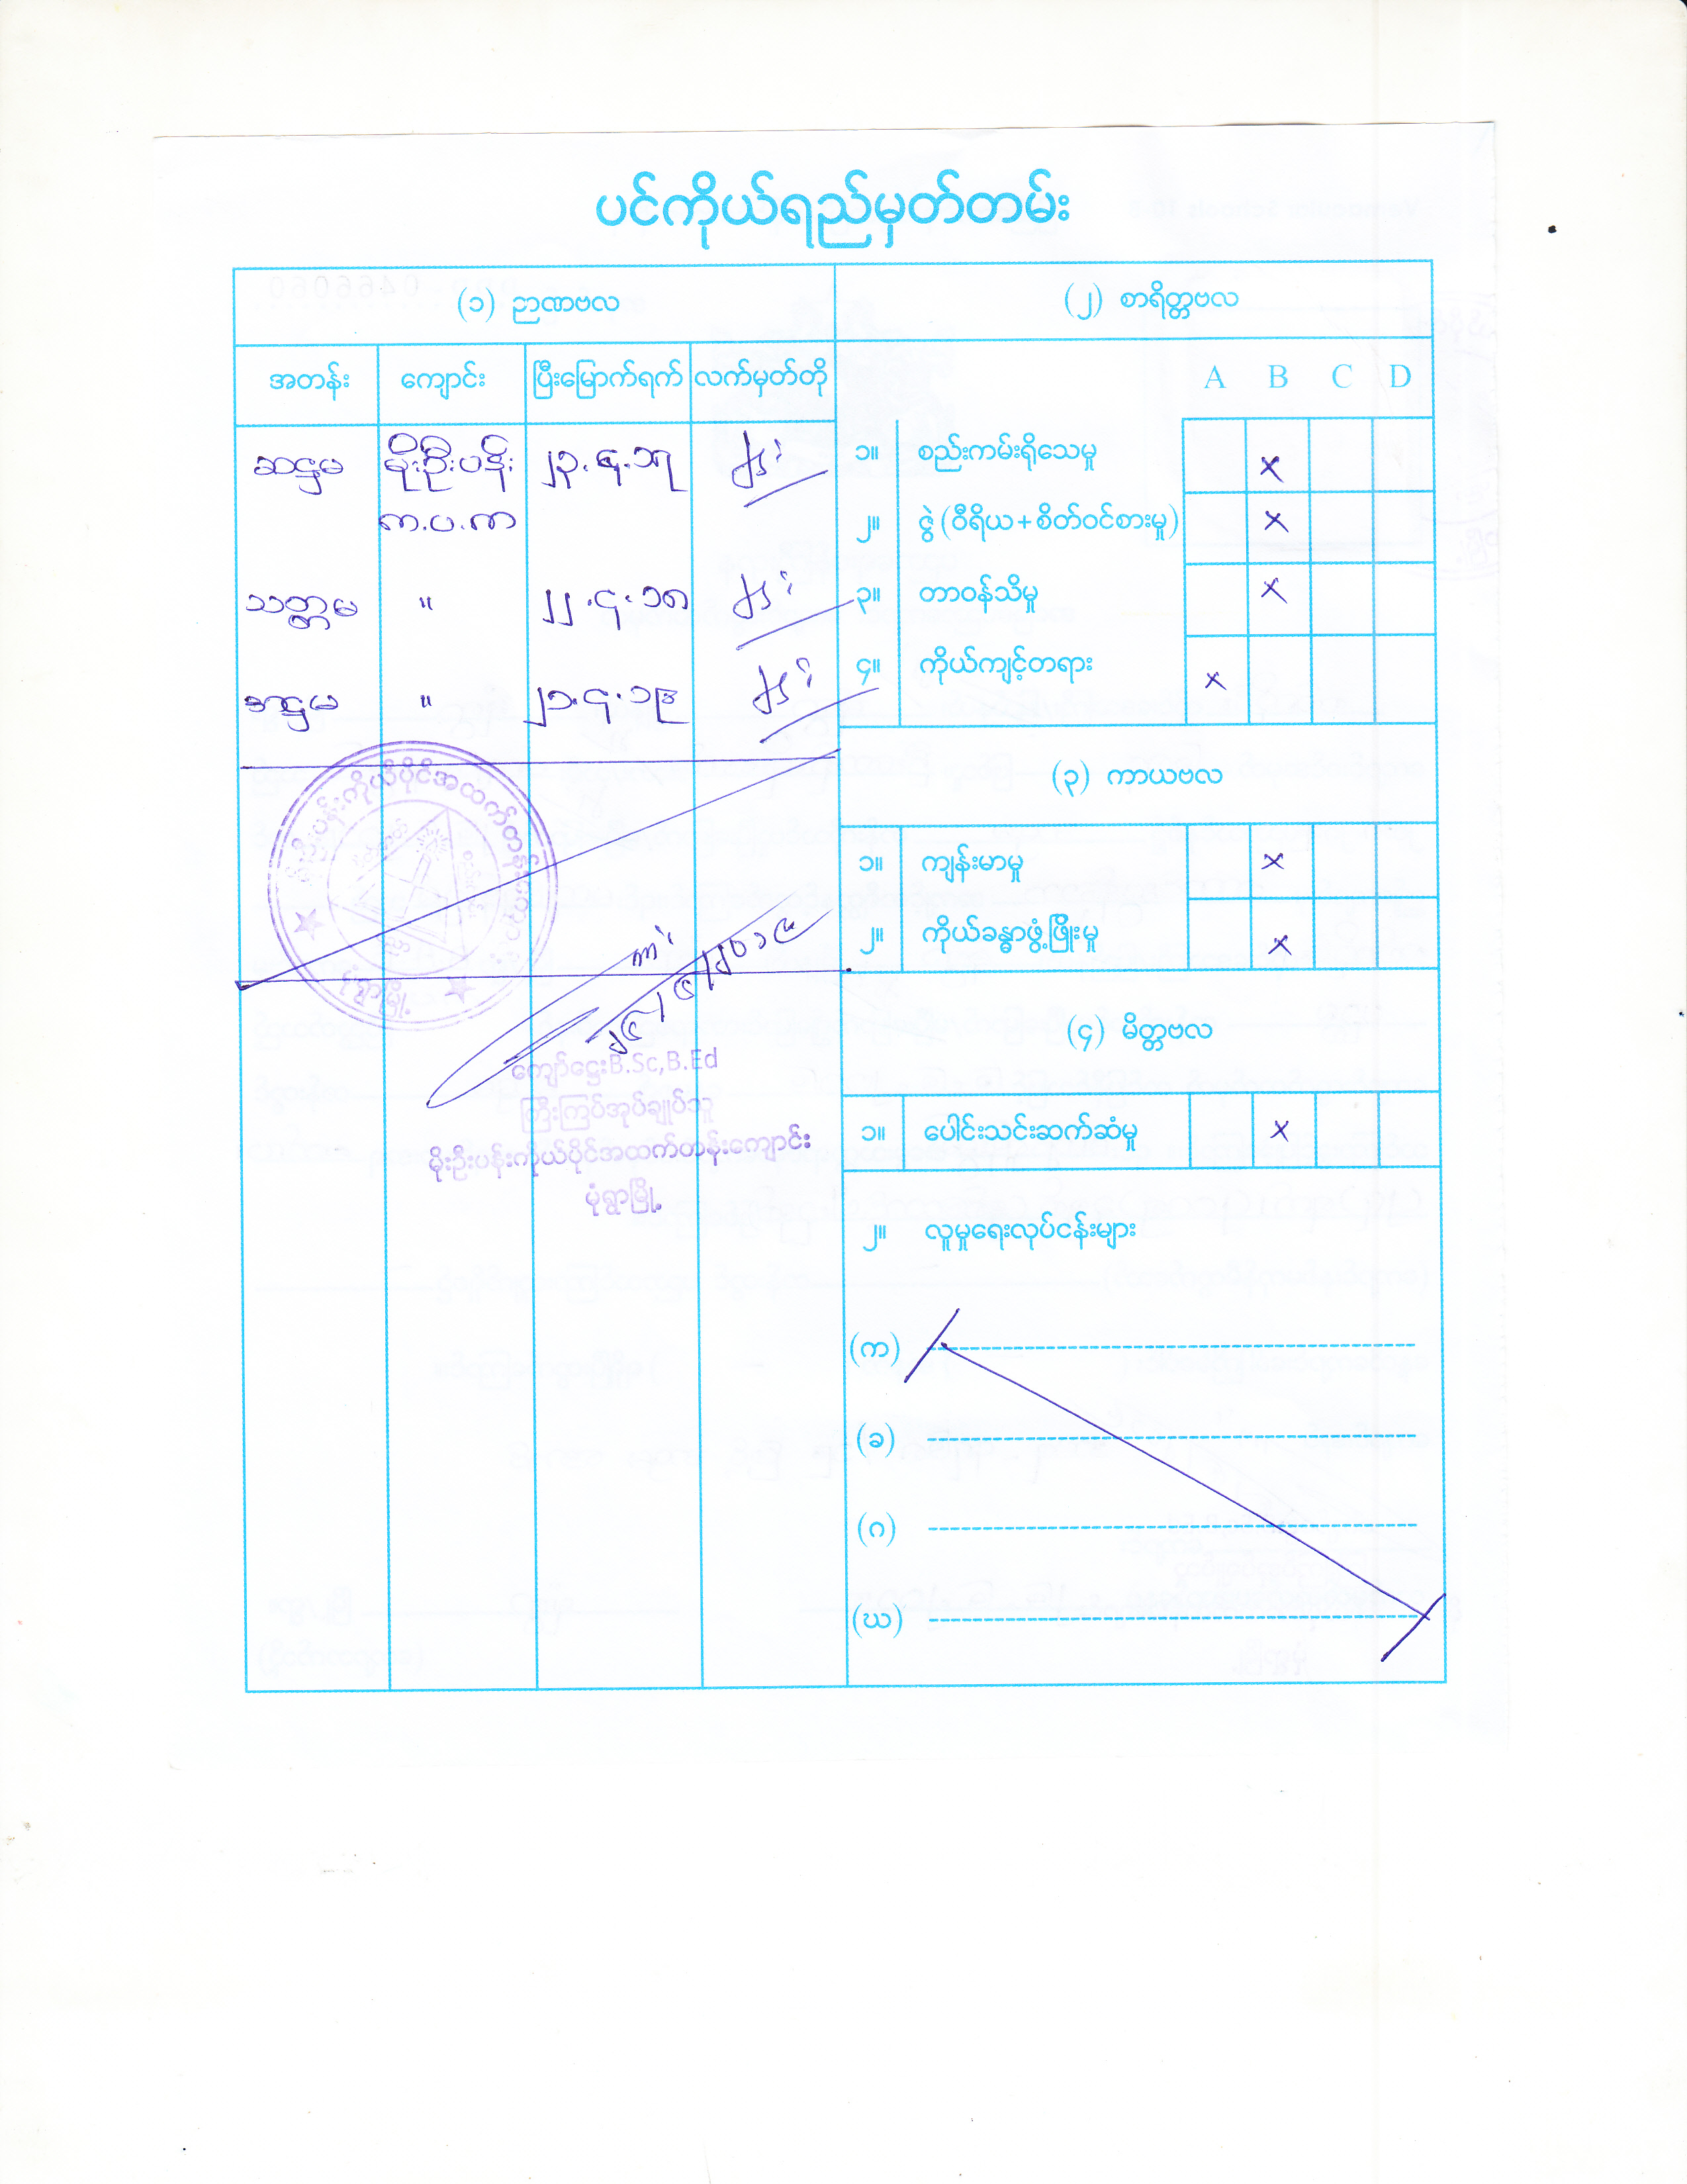 ပင်ကိုယ်ရည်မှတ်တမ်း
(၁) ဉာဏဗလ
အတန်း ကျောင်း ပြီးမြောက်ရက် လက်မှတ်တို
ဆဋ္ဌမ မိုးဦးပန်း ၂၃.၄.၁၇
က.ပ.ထ
သတ္တမ " ၂၂.၄.၁၈
အဋ္ဌမ " ၂၁.၄.၁၉
မိုးဦးပန်းကိုယ်ပိုင်အထက်တန်းကျောင်း
မုံရွာမြို့
ကျော်ဌေး B.Sc,B.Ed
ကြီးကြပ်အုပ်ချုပ်သူ
မိုးဦးပန်းကိုယ်ပိုင်အထက်တန်းကျောင်း
မုံရွာမြို့
(၂) စာရိတ္တဗလ
A B C D
၁။ စည်းကမ်းရိုသေမှု ×
၂။ ဇွဲ (ဝီရိယ + စိတ်ဝင်စားမှု) ×
၃။ တာဝန်သိမှု ×
၄။ ကိုယ်ကျင့်တရား ×
(၃) ကာယဗလ
၁။ ကျန်းမာမှု ×
၂။ ကိုယ်ခန္ဓာဖွံ့ဖြိုးမှု ×
(၄) မိတ္တဗလ
၁။ ပေါင်းသင်းဆက်ဆံမှု ×
၂။ လူမှုရေးလုပ်ငန်းများ
(က)
(ခ)
(ဂ)
(ဃ)